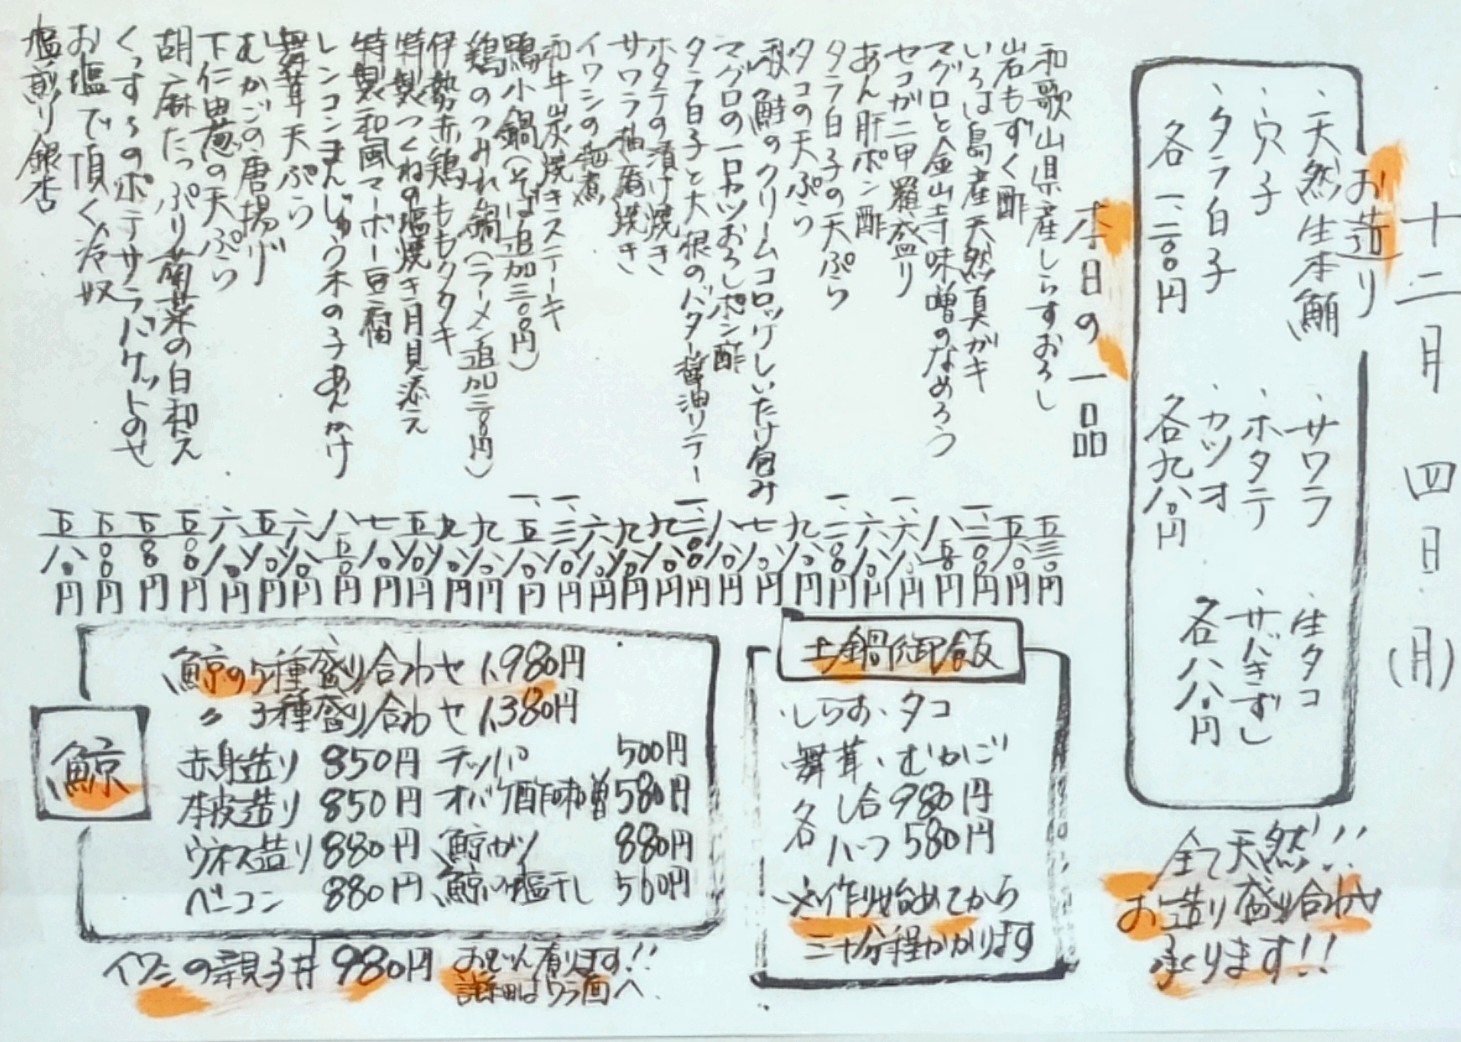 十二月四日(月)
お造り
・天然生本鮪
・穴子
・タラ白子
各一、二〇〇円
・サワラ
・ホタテ
・カツオ
各九八〇円
・生タコ
・サバきずし
各八八〇円
全て天然!!
お造り盛り合わせ
承ります!!
本日の一品
和歌山県産しらすおろし 五三〇円
岩もずく酢 五八〇円
いろは島産天然真ガキ 一、二〇〇円
マグロと金山寺味噌のなめろう 八五〇円
セコガニ甲羅盛り 一、六八〇円
あん肝ポン酢 六八〇円
タラ白子の天ぷら 一、二〇〇円
タコの天ぷら 九八〇円
秋鮭のクリームコロッケしいたけ包み 七八〇円
マグロの一口カツおろしポン酢 八八〇円
タラ白子と大根のバター醤油ソテー 一、二〇〇円
ホタテの漬け焼き 九八〇円
サワラ柚庵焼き 九八〇円
イワシの梅煮 六八〇円
和牛炭焼きステーキ 一、三八〇円
鴨小鍋(そば追加三〇〇円) 一、五八〇円
鶏のつみれ鍋(ラーメン追加三〇〇円) 九八〇円
伊勢赤鶏ももタタキ 九八〇円
特製つくねの塩焼き月見添え 五八〇円
特製和風マーボー豆腐 七八〇円
レンコンまんじゅう木の子あんかけ 八五〇円
舞茸天ぷら 六八〇円
むかごの唐揚げ 五八〇円
下仁田葱の天ぷら 六八〇円
胡麻たっぷり菊菜の白和え 五五〇円
くっすんのポテサラバケットのせ 五五〇円
お塩で頂く冷奴 五〇〇円
塩煎り銀杏 五八〇円
土鍋御飯
・しらす・タコ
・舞茸・むかご
各
一合980円
ハーフ580円
※作り始めてから
三十分程かかります
鯨
鯨の5種盛り合わせ 1,980円
〃 3種盛り合わせ 1,380円
赤身造り 850円
本皮造り 850円
ウネス造り 880円
ベーコン 880円
テッパ 500円
オバケ酢味噌 580円
鯨カツ 880円
鯨の塩干し 560円
イワシの親子丼 980円
おでん有ります!!
詳細はウラ面へ